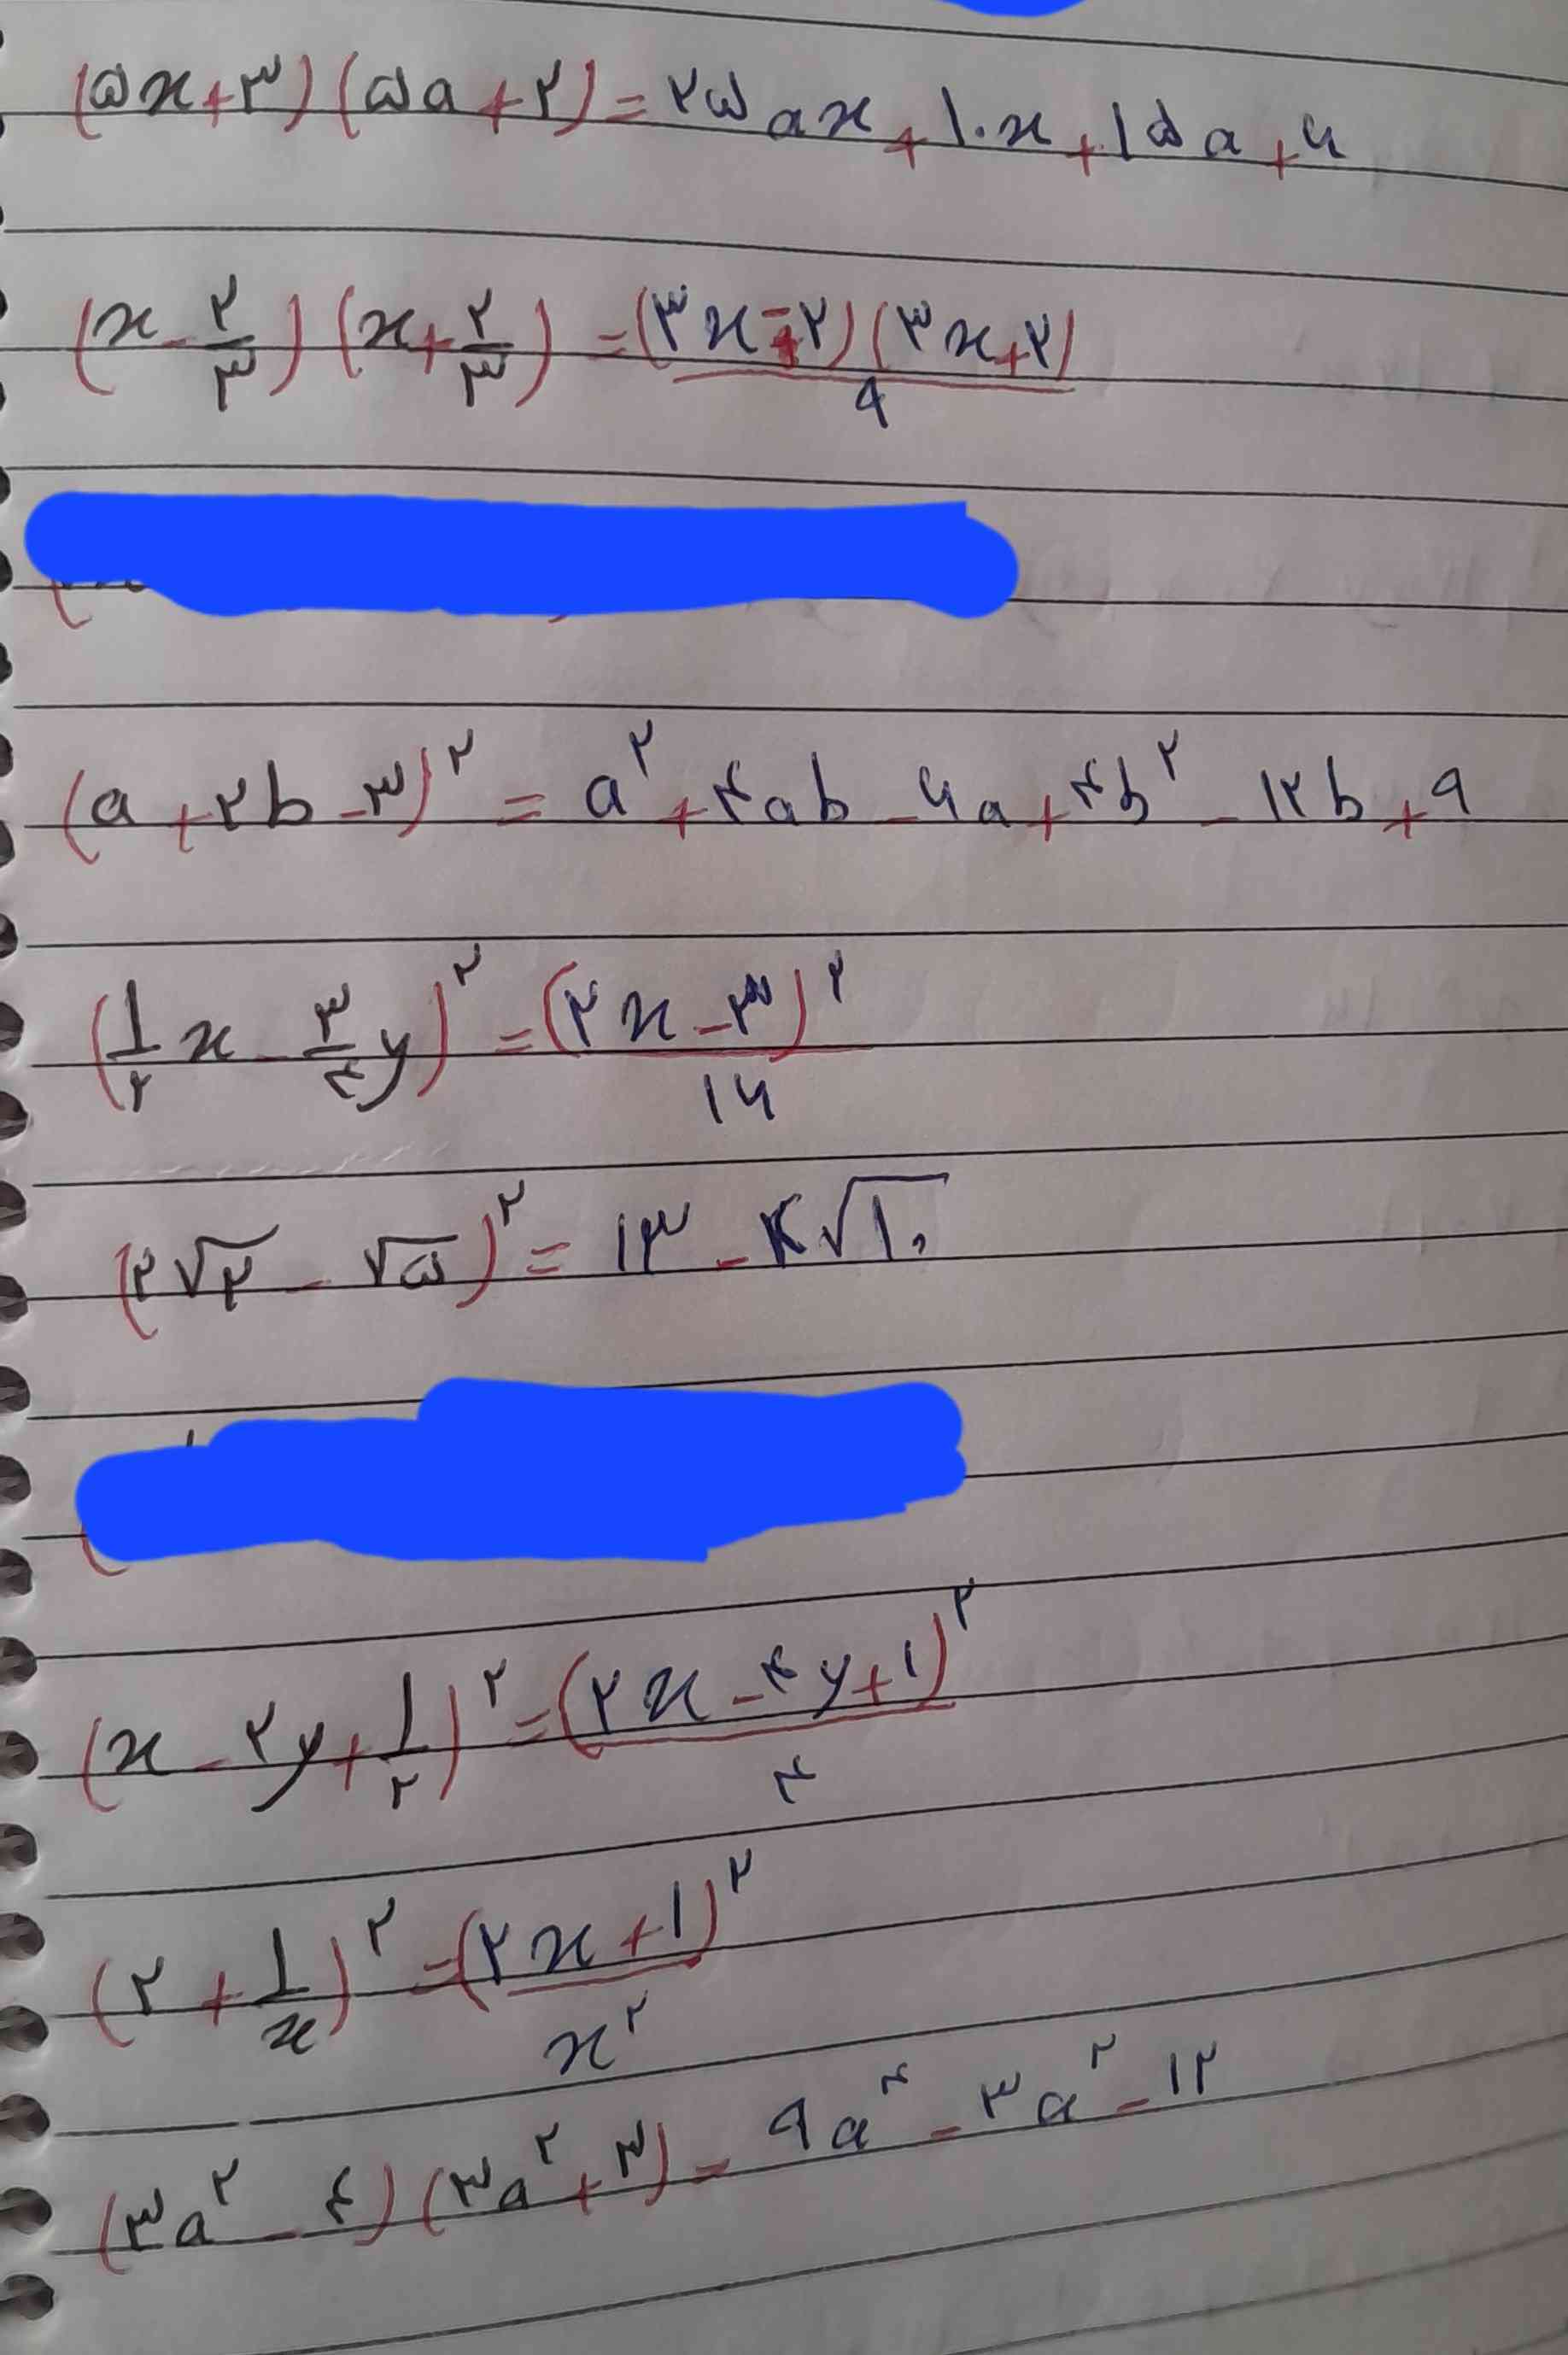 (۵x+۳)(۵a+۲)=۲۵ax+۱۰x+۱۵a+۶
(x-۲/۳)(x+۲/۳)=(۳x-۲)(۳x+۲)/۹
(a+۲b-۳)^۲=a^۲+۴ab-۶a+۴b^۲-۱۲b+۹
(۱/۲x-۳/۴y)^۲=(۲x-۳)^۲/۱۶
(۲√۲-√۵)^۲=۱۳-۴√۱۰
(x-۲y+۱/۲)^۲=(۲x-۴y+۱)^۲/۴
(۲+۱/x)^۲=(۲x+۱)^۲/x^۲
(۳a^۲-۴)(۳a^۲+۳)=۹a^۴-۳a^۲-۱۲